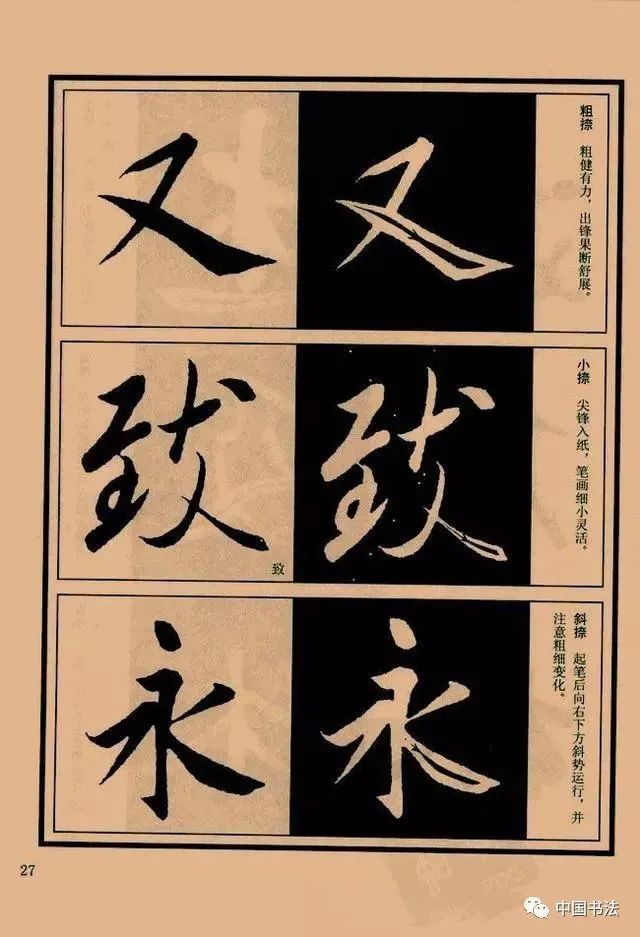 又
又
粗捺　粗健有力，出锋果断舒展。
致
致
致
小捺　尖锋入纸，笔画细小灵活。
永
永
斜捺　起笔后向右下方斜势运行，并
注意粗细变化。
27
中国书法